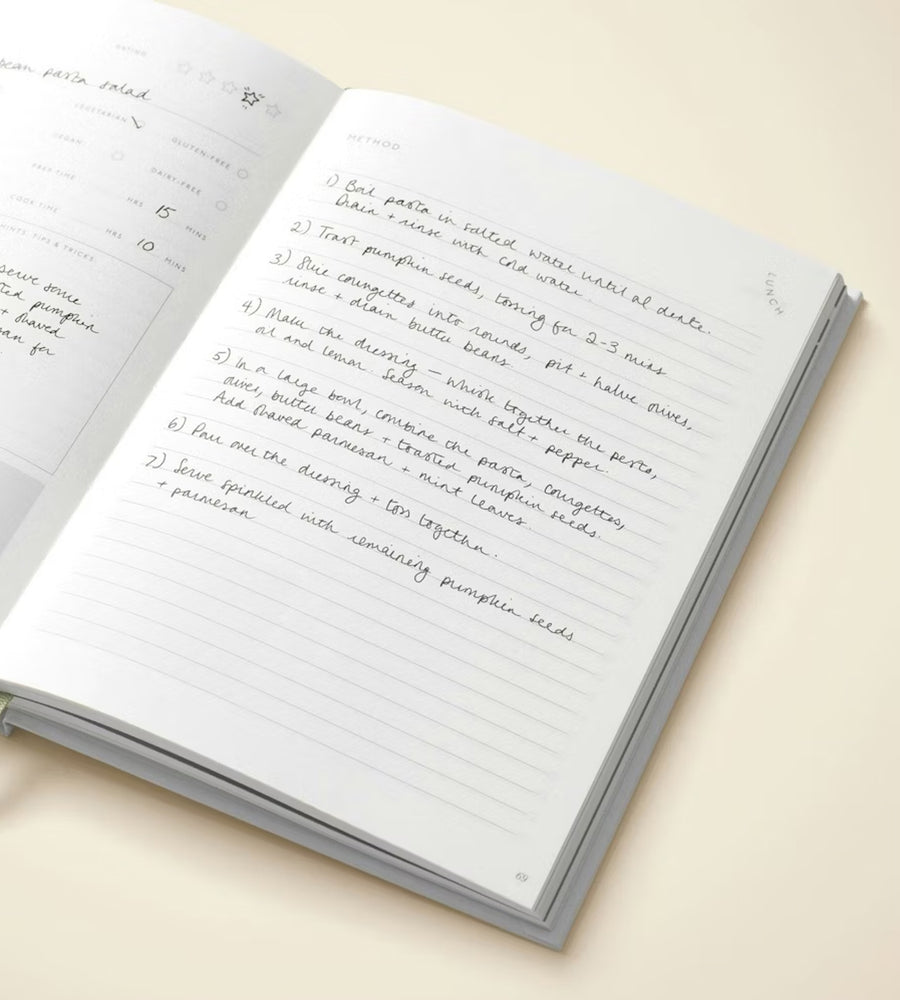 RATING
bean pasta salad
VEGETARIAN
GLUTEN-FREE
VEGAN
DAIRY-FREE
PREP TIME
HRS 15 MINS
COOK TIME
HRS 10 MINS
HINTS, TIPS & TRICKS
serve some
pumpkin
+ shaved
for
METHOD
LUNCH
1) Boil pasta in salted water until al dente.
Drain + rinse with cold water.
2) Toast pumpkin seeds, tossing for 2-3 mins
3) Slice courgettes into rounds, pit + halve olives,
rinse + drain butter beans.
4) Make the dressing — whisk together the pesto,
oil and lemon. Season with salt + pepper.
5) In a large bowl, combine the pasta, courgettes,
olives, butter beans + toasted pumpkin seeds.
Add shaved parmesan + mint leaves.
6) Pour over the dressing + toss together.
7) Serve sprinkled with remaining pumpkin seeds
+ parmesan
69